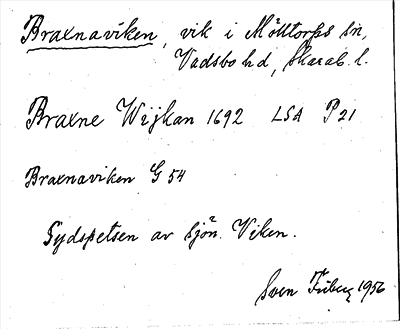 Braxnaviken, vik i Mölltorps sn,
Vadsbo hd, Skarab. l.
Braxne Wijkan 1692 LSA P21
Braxnaviken G 54
Sydspetsen av sjön Viken.
Sven 1956